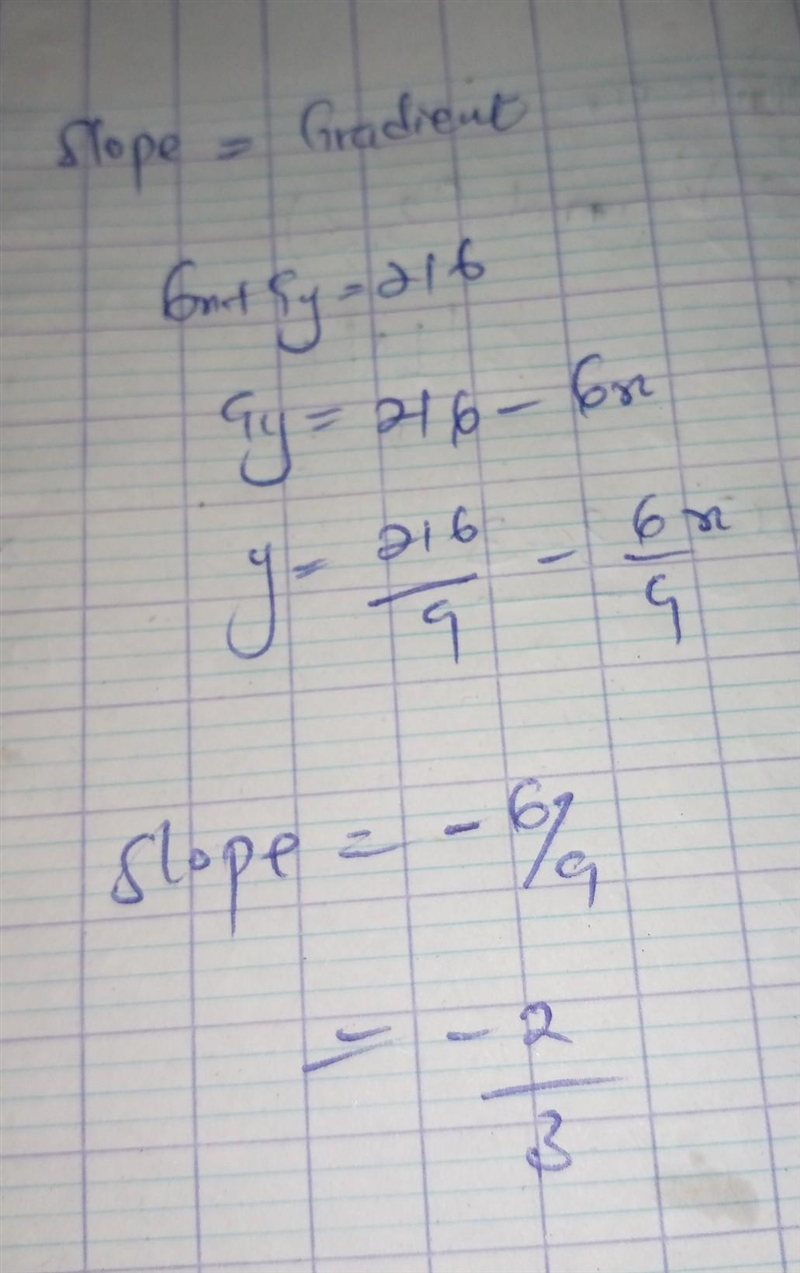 Slope = Gradient
6x + 9y = 216
9y = 216 - 6x
y = 216/9 - 6x/9
Slope = - 6/9
= - 2/3